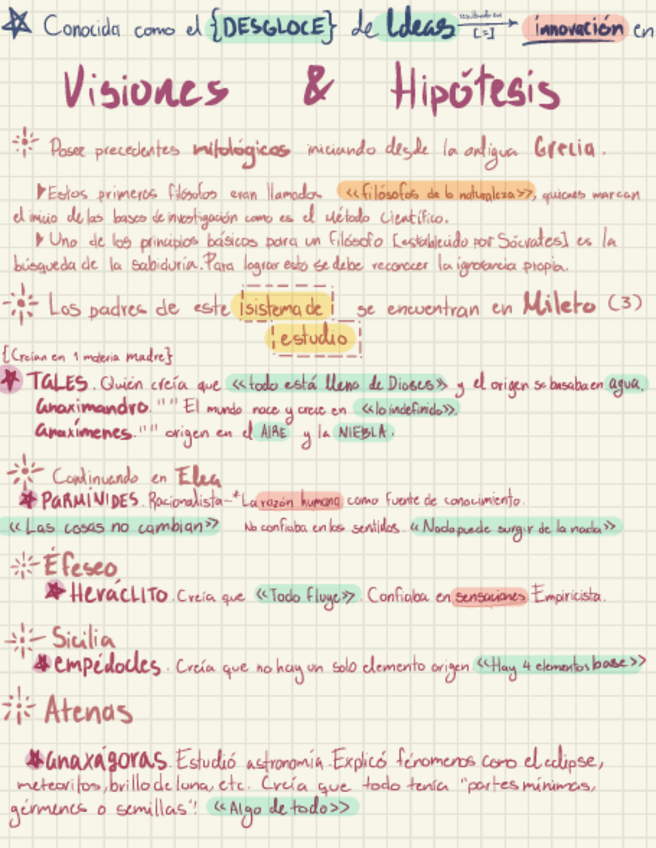 Conocida como el {DESGLOCE} de Ideas resultando en [=] innovación en
Visiones & Hipótesis
Posee precedentes mitológicos iniciando desde la antigua Grecia.
Estos primeros filósofos eran llamados <<filósofos de la naturaleza>>, quienes marcan
el inicio de las bases de investigación como es el Método Científico.
Uno de los principios básicos para un Filósofo [establecido por Sócrates] es la
búsqueda de la sabiduría. Para lograr esto se debe reconocer la ignorancia propia.
Los padres de este sistema de se encuentran en Mileto (3)
estudio
{Creían en 1 materia madre}
TALES. Quién creía que <<todo está lleno de Dioses>> y el origen se basaba en agua.
Anaximandro. "" El mundo nace y crece en <<lo indefinido>>.
Anaxímenes. "" origen en el AIRE y la NIEBLA.
Continuando en Elea
PARMÍNIDES. Racionalista-*La razón humana como fuente de conocimiento.
<<Las cosas no cambian>> No confiaba en los sentidos. <<Nada puede surgir de la nada>>
Éfeseo
HeráCLITO. Creía que <<Todo fluye>>. Confiaba en sensaciones. Empiricista.
Sicilia
empédocles. Creía que no hay un solo elemento origen <<Hay 4 elementos base>>
Atenas
anaxágoras. Estudió astronomía. Explicó fénomenos como el eclipse,
meteoritos, brillo de luna, etc. Creía que todo tenía "partes mínimas,
gérmenes o semillas". <<Algo de todo>>